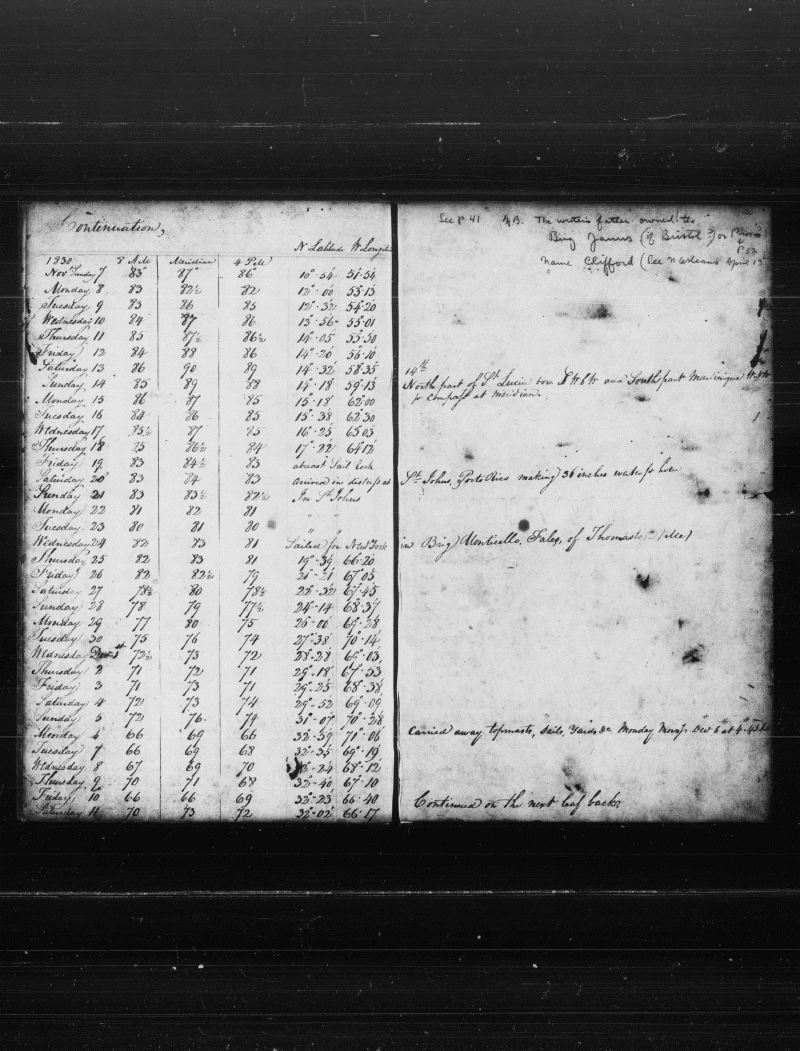 Continuation,
N Latitude W Longitu
1830 8 A M Meridian 4 P M
Nov Sunday 7 83° 87° 86° 10°·54 51·54
Monday 8 83 82½ 82 12°·00 53·13
Tuesday 9 83 86 85 12°·32 54·20
Wednesday 10 84 87 86 13°·56 55·01
Thursday 11 85 87½ 86½ 14°·05 55·50
Friday 12 84 88 86 14°·20 56·10
Saturday 13 86 90 89 14°·32 58·35
Sunday, 14 85 89 88 14°·18 59·13
Monday 15 86 87 85 15·18 62·00
Tuesday 16 84 86 85 15°·38 62·30
Wednesday 17 85½ 87 85 16°·25 63·03
Thursday 18 85 86½ 84 17°·22 64·12
Friday 19 83 84½ 83 abreast Sail Rock
Saturday 20 83 84 83 arrived in distress at
Sunday 21 83 83½ 82½ In St Johns
Monday 22 81 82 81 "
Tuesday 23 80 81 80 " "
Wednesday 24 82 83 81 Sailed for New York
Thursday 25 82 83 81 19°·39 66·20
Friday 26 82 82½ 79 21°·21 67°05
Saturday 27 78½ 80 78½ 22°·32 67·45
Sunday 28 78 79 77½ 24°·14 68·37
Monday 29 77 80 75 26·00 69·28
Tuesday 30 75 76 74 27°·38 70·14
Wednesday Dec 1st 72½ 73 72 28·28 69·03
Thursday 2 71 72 71 29°·18 67·53
Friday 3 71 73 71 29°·25 68·38
Saturday 4 72 73 74 29°·52 69·09
Sunday 5 72 76 74 31°·07 70·28
Monday 6 66 69 66 32°·59 71°06
Tuesday 7 66 69 68 32°·35 69°·19
Wednesday 8 67 69 70 ·24 68·12
Thursday 9 70 71 68 32°·40 67·10
Friday 10 66 66 69 32°·23 66·40
Saturday 11 70 73 72 32°·02 66·17
See p 41 N.B. The writer's father owned the
Brig James (of Bristol?) or
P 52
name Clifford (See N Orleans April 13
14th
North part of St Lucia bore and South part Martinique
pr compass at meridian.
St Johns, Porto Rico making 36 inches water pr hour
in Brig Monticello, Fales, of Thomaston (Me)
Carried away topmasts, Sails, Yards &c Monday Morng Dec 6th at 4°·45
Continued on the next leaf back